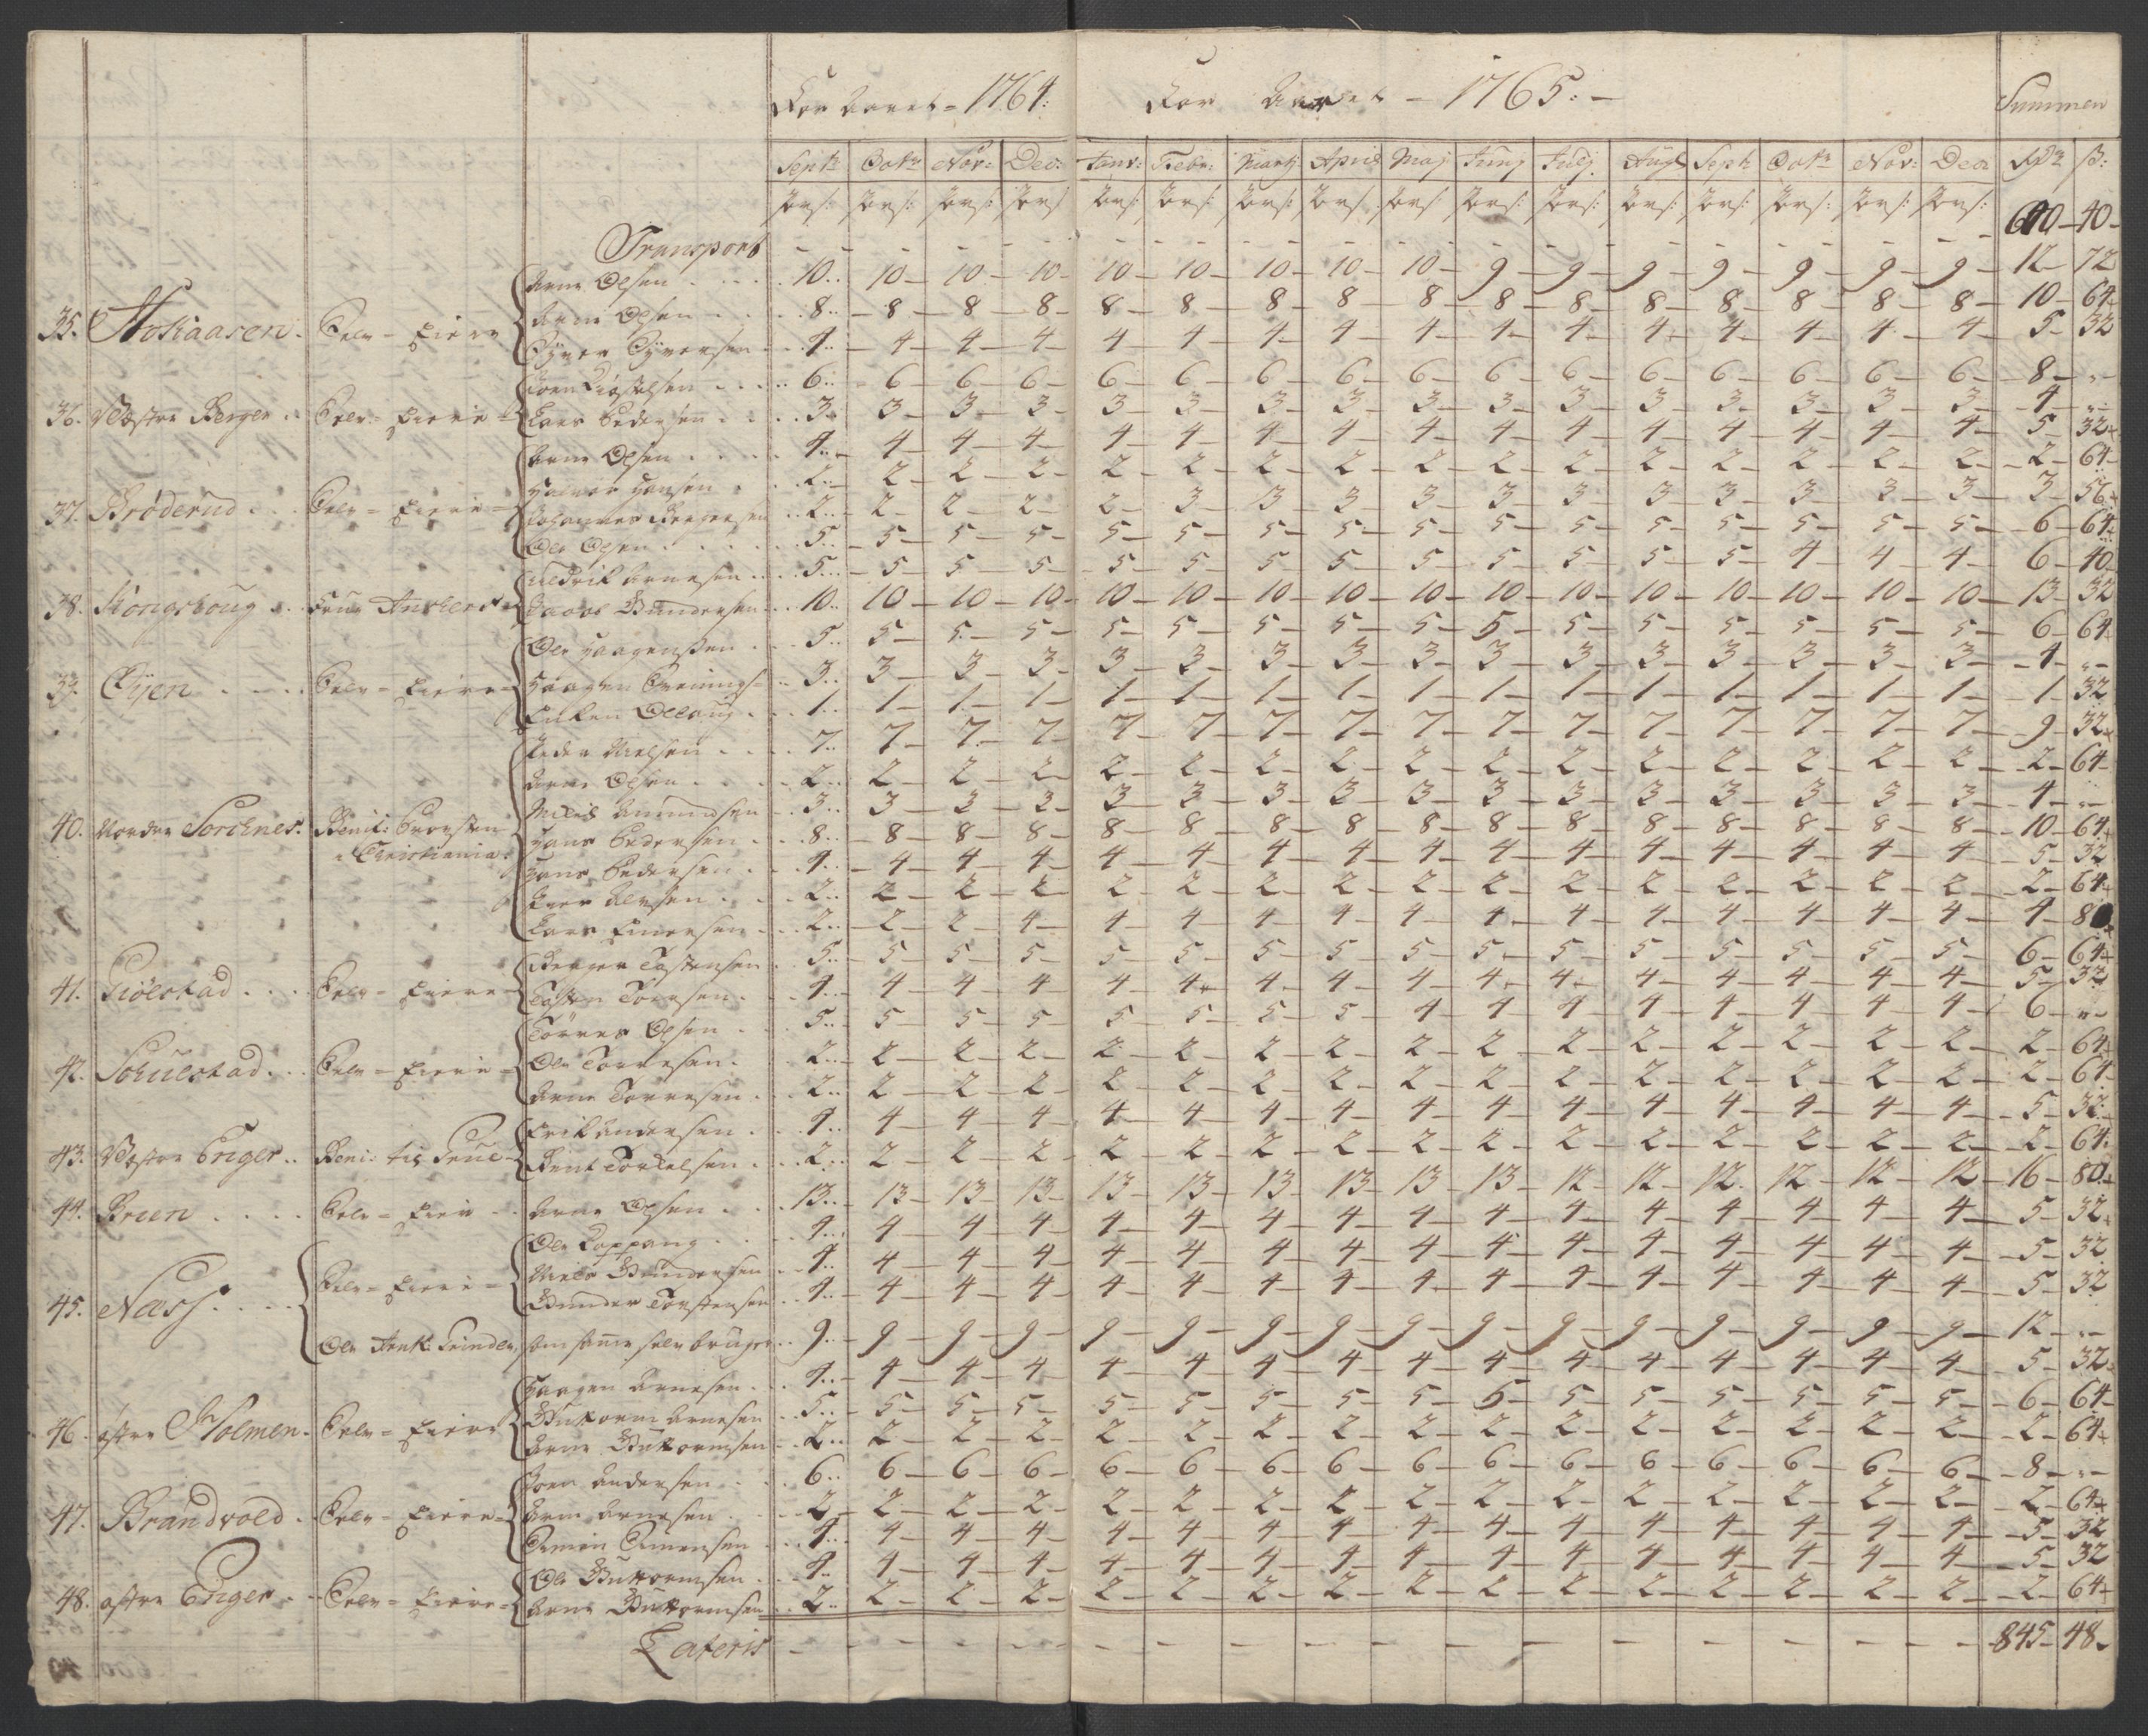 For Aaret = 1764: For Aaret - 1765: - Summen
Septr Octr Nov: Dec: Janv: Febr: Martj April Maj Junj Julj Augt Septr Octr Nov: Decr Rdr ß:
Pers: Pers: Pers: Pers: Pers: Pers: Pers: Pers: Pers: Pers: Pers: Pers: Pers: Pers: Pers: Pers:
Transport - - - - - - - - - - - - - - - - 600 - 40 -
Arne Olsen . . . 10 10 10 10 10 10 10 10 10 9 9 9 9 9 9 9 12 72
35. Hokaasen . Selv = Eiere Arne Olsen . . 8 8 8 8 8 8 8 8 8 8 8 8 8 8 8 8 10 64
Syver Syversen 4 4 4 4 4 4 4 4 4 4 4 4 4 4 4 4 5 32
Joen Kiøstelsen . . . 6 6 6 6 6 6 6 6 6 6 6 6 6 6 6 6 8 "
36. Vestre Berger . Selv = Eiere = Lars Pedersen . . . 3 3 3 3 3 3 3 3 3 3 3 3 3 3 3 3 4 "
Arne Olsen . . . 4 4 4 4 4 4 4 4 4 4 4 4 4 4 4 4 5 32
Halvor Hansen . 2 2 2 2 2 2 2 2 2 2 2 2 2 2 2 2 2 64
37. Brøderud . . . Selv = Eiere = Johannes Bergersen . 2 2 2 2 2 3 3 3 3 3 3 3 3 3 3 3 3 56
Ole Olsen . . . 5 5 5 5 5 5 5 5 5 5 5 5 5 5 5 5 6 64
Fredrik Arnesen . . 5 5 5 5 5 5 5 5 5 5 5 5 5 4 4 4 6 40
38. Kongshoug . . Frue Ankers = Jacob Gundersen . 10 10 10 10 10 10 10 10 10 10 10 10 10 10 10 10 13 32
Ole Haagensen . . 5 5 5 5 5 5 5 5 5 5 5 5 5 5 5 5 6 64
39. Eijen . . . . Selv = Eiere = Haagen Svenings= 3 3 3 3 3 3 3 3 3 3 3 3 3 3 3 3 4 "
Enken Olloug . 1 1 1 1 1 1 1 1 1 1 1 1 1 1 1 1 1 32
Peder Nielsen . . 7 7 7 7 7 7 7 7 7 7 7 7 7 7 7 7 9 32
Arne Olsen . . . 2 2 2 2 2 2 2 2 2 2 2 2 2 2 2 2 2 64
Amundsen 3 3 3 3 3 3 3 3 3 3 3 3 3 3 3 3 4 "
40. Nordre Sorknes . Benif: Provsten Hans Pedersen . 8 8 8 8 8 8 8 8 8 8 8 8 8 8 8 8 10 64
i Christiania . Hans Pedersen . 4 4 4 4 4 4 4 4 4 4 4 4 4 4 4 4 5 32
Peer Olsen . . 2 2 2 2 2 2 2 2 2 2 2 2 2 2 2 2 2 64
Lars Einersen . 2 2 2 4 4 4 4 4 4 4 4 4 4 4 4 4 4 8
Berger Tostensen . 5 5 5 5 5 5 5 5 5 5 5 5 5 5 5 5 6 64
41. Kiølstad . . . Selv = Eiere = Tosten Torresen . 4 4 4 4 4 4 4 4 4 4 4 4 4 4 4 4 5 32
Torres Olsen . 5 5 5 5 5 5 5 5 4 4 4 4 4 4 4 4 6 "
42. Skulstad . . . Selv = Eiere = Ole Torresen . 2 2 2 2 2 2 2 2 2 2 2 2 2 2 2 2 2 64
Arne Torresen . 2 2 2 2 2 2 2 2 2 2 2 2 2 2 2 2 2 64
Erik Andersen . 4 4 4 4 4 4 4 4 4 4 4 4 4 4 4 4 5 32
43. Vestre Enger . . Beni: til Grue = Bent Torkelsen . 2 2 2 2 2 2 2 2 2 2 2 2 2 2 2 2 2 64
44. Breen . . . . Selv = Eier . Arne Olsen . . 13 13 13 13 13 13 13 13 13 13 12 12 12 12 12 12 16 80
Ole Koppang . . 4 4 4 4 4 4 4 4 4 4 4 4 4 4 4 4 5 32
Selv = Eiere = Niels Gundersen . 4 4 4 4 4 4 4 4 4 4 4 4 4 4 4 4 5 32
45. Næss . . . . Gunder Torstensen . 4 4 4 4 4 4 4 4 4 4 4 4 4 4 4 4 5 32
Ole som samme selv bruger . 9 9 9 9 9 9 9 9 9 9 9 9 9 9 9 9 12 "
Haagen Arnesen . 4 4 4 4 4 4 4 4 4 4 4 4 4 4 4 4 5 32
46. østre Holmen . Selv = Eiere Guttorm Arnesen . 5 5 5 5 5 5 5 5 5 5 5 5 5 5 5 5 6 64
Arne Guttormsen . 2 2 2 2 2 2 2 2 2 2 2 2 2 2 2 2 2 64
Joen Andersen . . 6 6 6 6 6 6 6 6 6 6 6 6 6 6 6 6 8 "
47. Brandvold . Selv = Eiere = Arne Arnesen . 2 2 2 2 2 2 2 2 2 2 2 2 2 2 2 2 2 64
Simen Simensen . 4 4 4 4 4 4 4 4 4 4 4 4 4 4 4 4 5 32
Ole Guttormsen . 4 4 4 4 4 4 4 4 4 4 4 4 4 4 4 4 5 32
48. østre Enger . . Selv = Eiere = Arne Guttormsen . 2 2 2 2 2 2 2 2 2 2 2 2 2 2 2 2 2 64
Lateris - - - - - - - - - - - - - - - - 845 - 48 -